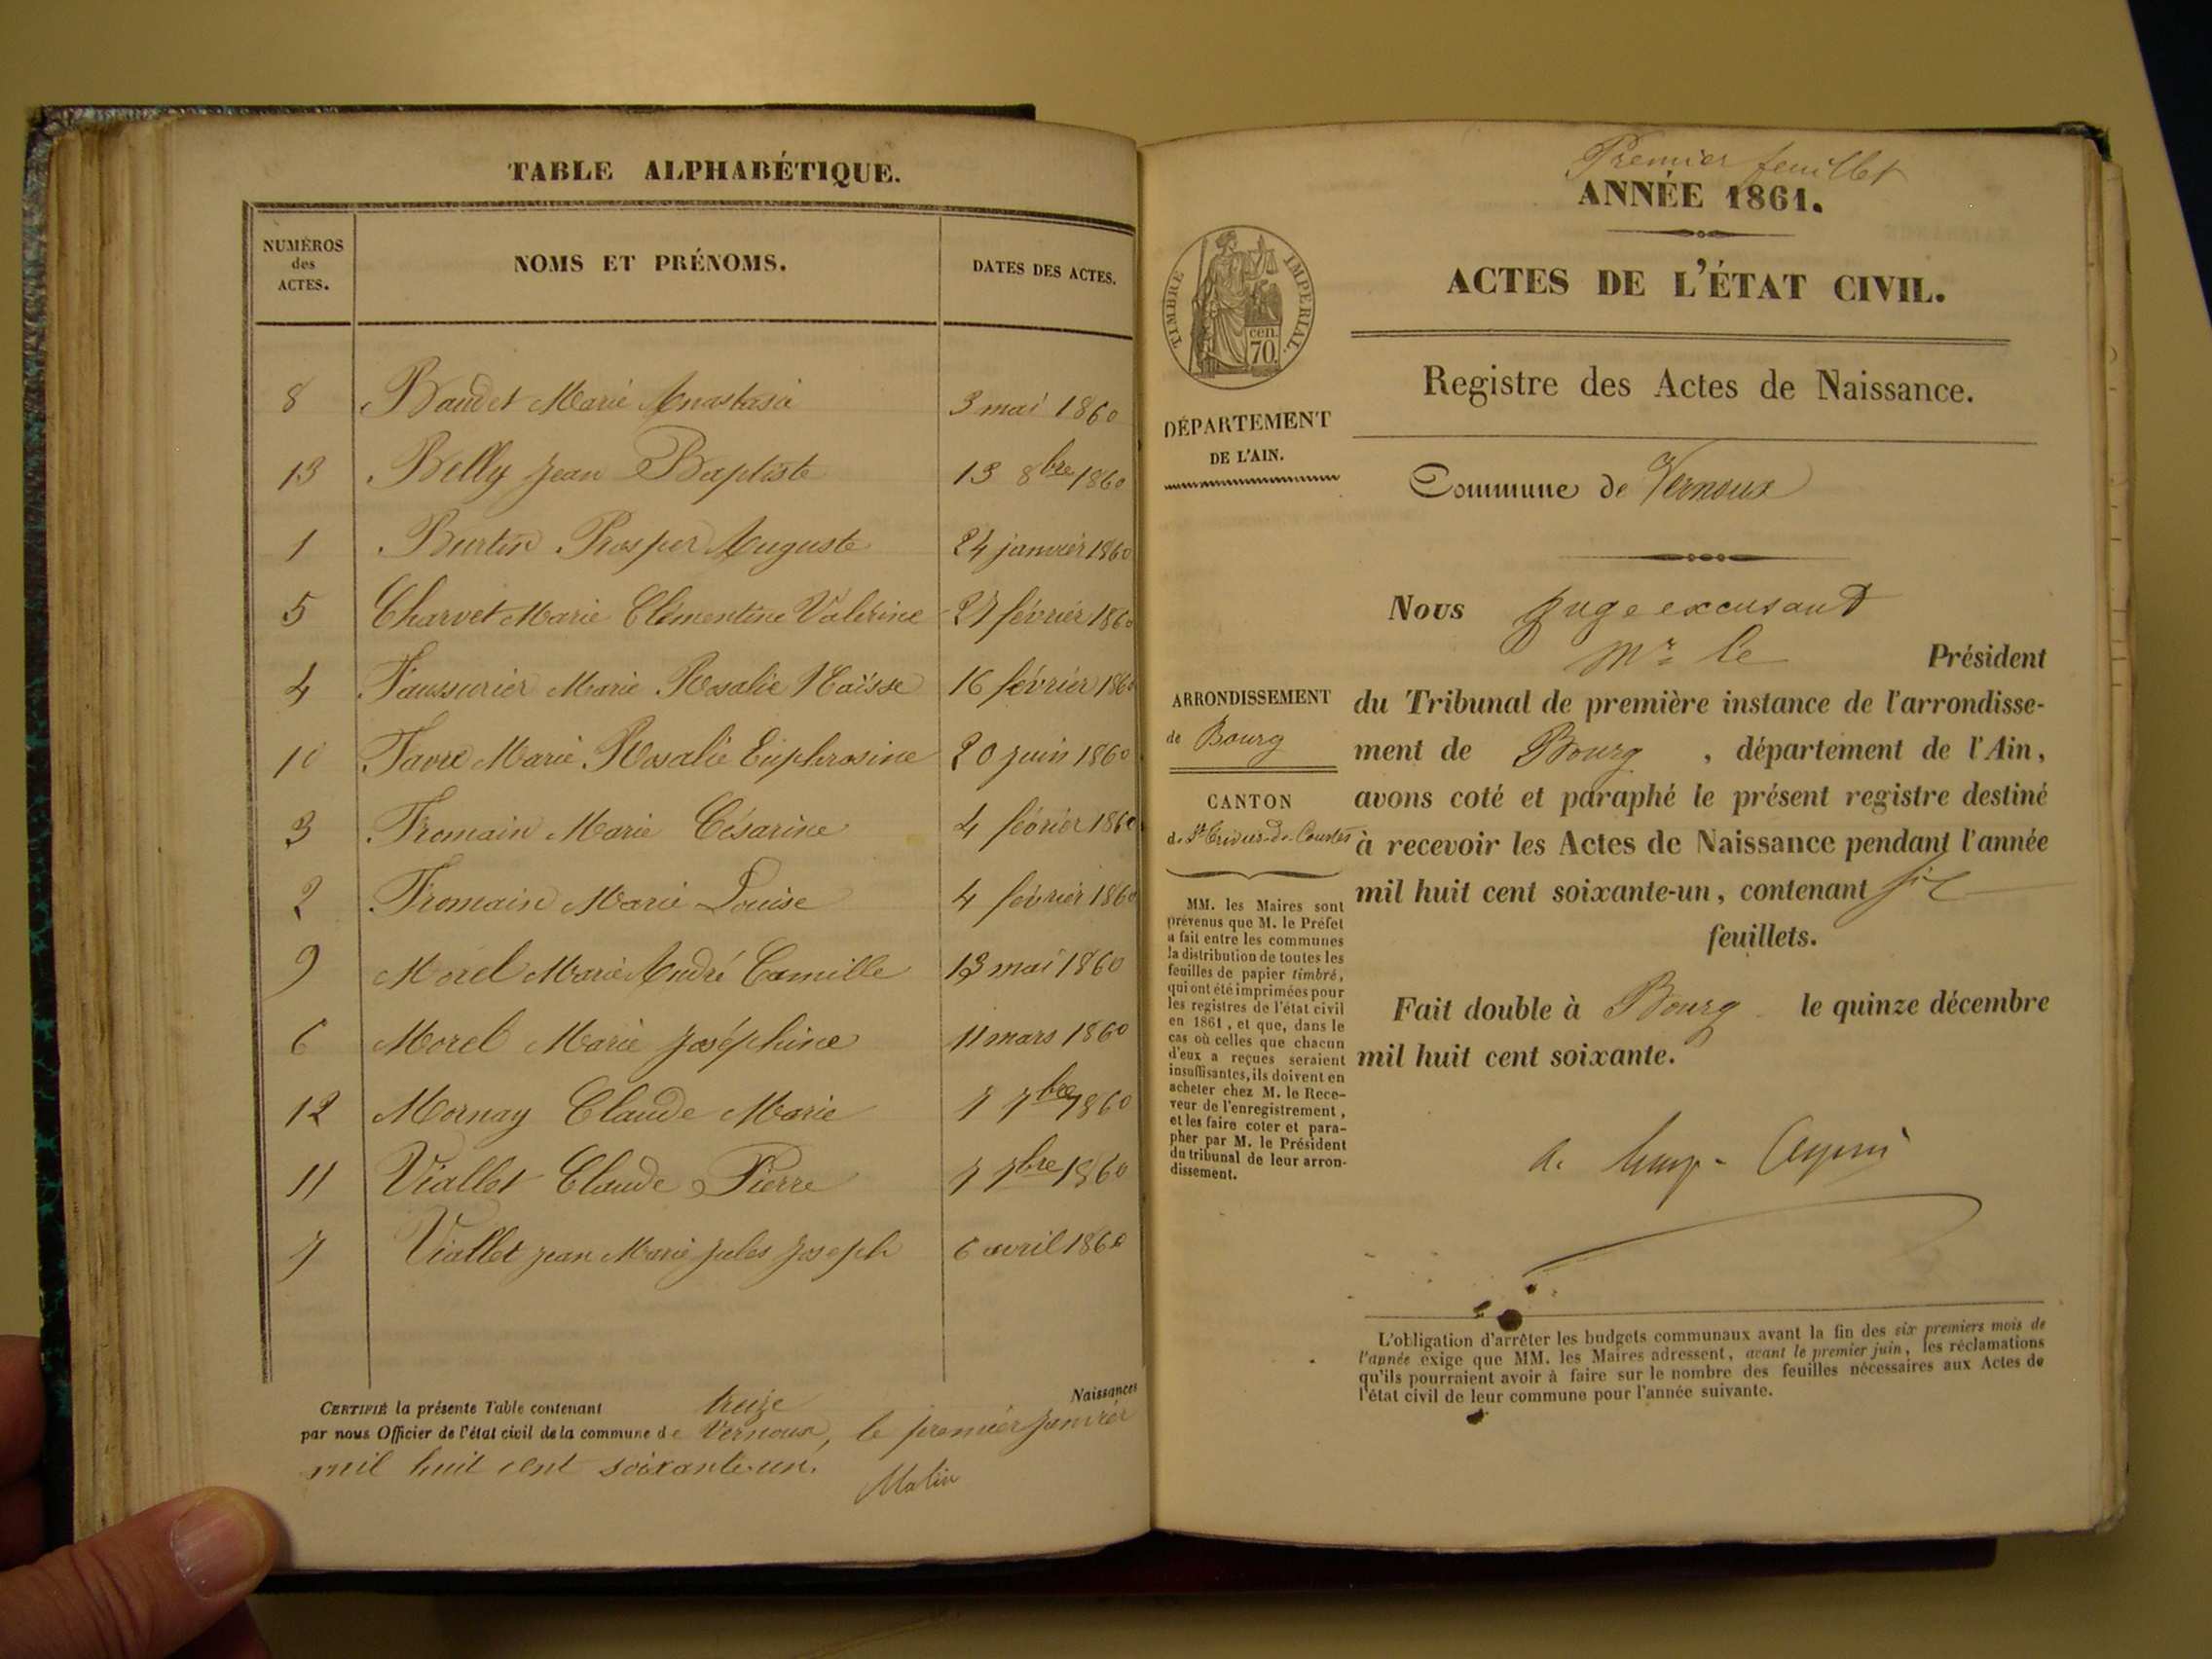 TABLE ALPHABÉTIQUE.
NUMÉROS des ACTES. NOMS ET PRÉNOMS. DATES DES ACTES.
8 Baudet Marie Anastasie 3 mai 1860
13 Belly Jean Baptiste 13 8bre 1860
1 Burtin Prosper Auguste 24 janvier 1860
5 Charvet Marie Clémentine Valérine 27 février 1860
4 Faussurier Marie Rosalie 16 février 1860
10 Favre Marie Rosalie Euphrosine 20 juin 1860
3 Fromain Marie Césarine 4 février 1860
2 Fromain Marie Louise 4 février 1860
9 Morel Marie André Camille 13 mai 1860
6 Morel Marie Joséphine 11 mars 1860
12 Mornay Claude Marie 7 7bre 1860
11 Viallet Claude Pierre 7 7bre 1860
7 Viallet Jean Marie Jules Joseph 6 avril 1860
CERTIFIÉ la présente Table contenant treize Naissances
par nous Officier de l'état civil de la commune de Vernoux, le premier janvier
mil huit cent soixante-un.
Premier feuillet
ANNÉE 1861.
TIMBRE IMPERIAL.
cen.
70.
ACTES DE L'ÉTAT CIVIL.
Registre des Actes de Naissance.
DÉPARTEMENT
DE L'AIN.
Commune de Vernoux
Nous juge excusant
Mr le Président
ARRONDISSEMENT
de Bourg
CANTON
de St Trivier-de-Courtes
MM. les Maires sont
prévenus que M. le Préfet
a fait entre les communes
la distribution de toutes les
feuilles de papier timbré,
qui ont été imprimées pour
les registres de l'état civil
en 1861, et que, dans le
cas où celles que chacun
d'eux a reçues seraient
insuffisantes, ils doivent en
acheter chez M. le Rece-
veur de l'enregistrement,
et les faire coter et para-
pher par M. le Président
du tribunal de leur arron-
dissement.
du Tribunal de première instance de l'arrondisse-
ment de Bourg, département de l'Ain,
avons coté et paraphé le présent registre destiné
à recevoir les Actes de Naissance pendant l'année
mil huit cent soixante-un, contenant six
feuillets.
Fait double à Bourg le quinze décembre
mil huit cent soixante.
L'obligation d'arrêter les budgets communaux avant la fin des six premiers mois de
l'année exige que MM. les Maires adressent, avant le premier juin, les réclamations
qu'ils pourraient avoir à faire sur le nombre des feuilles nécessaires aux Actes de
l'état civil de leur commune pour l'année suivante.